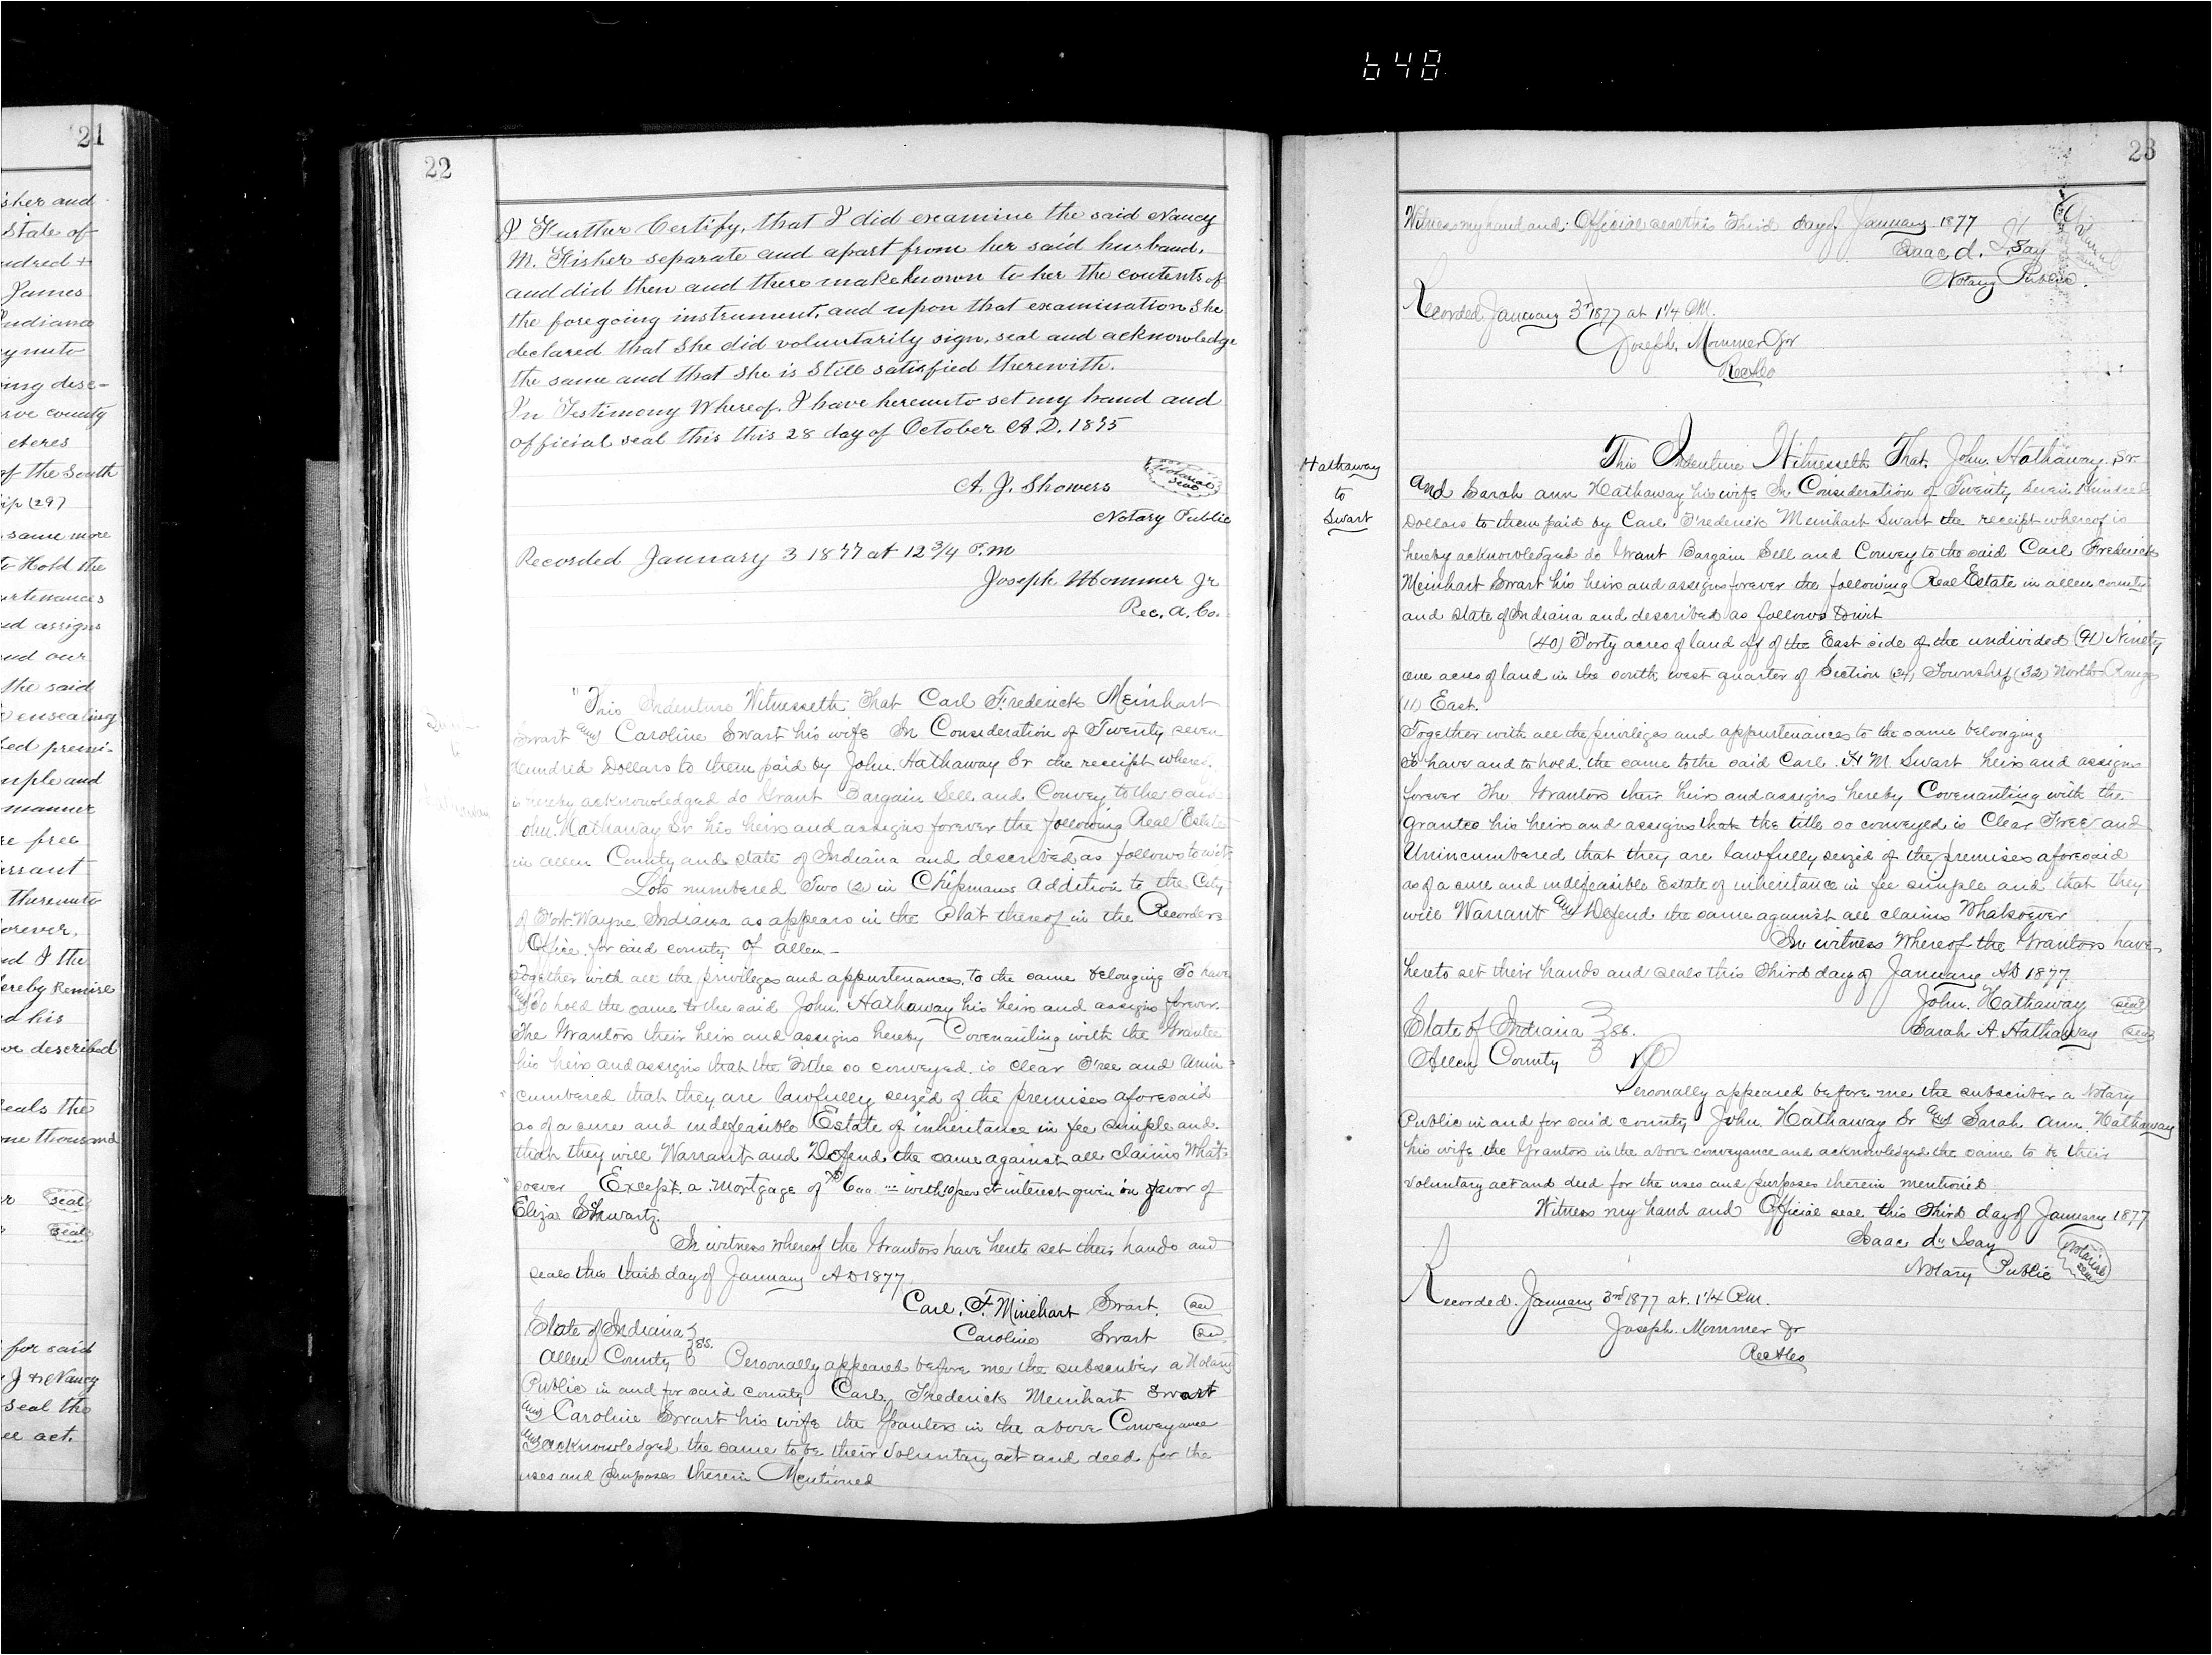 648
21
isher and
State of
undred +
James
Indiana
y unto
ing desc-
rve county
Acres
of the South
ip (29)
same more
to Hold the
urtenances
nd assigns
and our
the said
ensealing
bed premi-
mple and
manner
re free
arrant
thereunto
orever.
nd I the
ereby Remise
d his
ve described
eals the
one thousand
seal
seal
for said
J & Nancy
seal the
ee act.
22
I Further Certify, that I did examine the said Nancy
M. Fisher separate and apart from her said husband,
and did then and there make known to her the contents of
the foregoing instrument, and upon that examination She
declared that She did voluntarily sign, seal and acknowledge
the same and that She is Still satisfied therewith.
In Testimony Whereof, I have hereunto set my hand and
official seal this this 28 day of October A.D. 1875
A. J. Showers Notarial Seal
Notary Public
Recorded January 3 1877 at 12 3/4 P.M
Joseph Mommer Jr
Rec. A. Co.
"This Indenture Witnesseth That Carl Frederick Meinhart
Swart and Caroline Swart his wife In Consideration of Twenty seven
Hundred Dollars to them paid by John Hathaway Sr the receipt whereof
is hereby acknowledged do Grant Bargain Sell and Convey to the said
John Hathaway Sr his heirs and assigns forever the following Real Estate
in Allen County and State of Indiana and described as follows to wit
Lots numbered Two (2) in Chipmans Addition to the City
of Fort Wayne Indiana as appears in the Plat thereof in the Recorders
Office for said county of Allen -
Together with all the privileges and appurtenances to the same belonging To have
and To hold the same to the said John Hathaway his heirs and assigns forever.
The Grantors their heirs and assigns hereby Covenanting with the Grantee
his heirs and assigns that the Title so conveyed is Clear Free and Unin=
cumbered that they are lawfully seized of the premises aforesaid
as of a sure and indefeasible Estate of inheritance in fee simple and
that they will Warrant and Defend the same against all claims What=
soever Except a Mortgage of $600 with 10 per ct interest given in favor of
Eliza Shwartz.
In witness whereof the Grantors have hereto set their hands and
seals this third day of January AD 1877.
Carl. F. Minehart Swart. seal
State of Indiana } Caroline Swart seal
Allen County } SS. Personally appeared before me the subscriber a Notary
Public in and for said County Carl Frederick Meinhart Swart
and Caroline Swart his wife the Grantors in the above Conveyance
and acknowledged the same to be their voluntary act and deed for the
uses and purposes therein Mentioned
23
Witness my hand and Official seal this Third day of January 1877
Isaac d. Isay
Notary Public.
Recorded January 3rd 1877 at 1 1/4 P.M.
Joseph Mommer Jr
Rec A Co
Hathaway
to
Swart
This Indenture Witnesseth That, John Hathaway Sr
and Sarah Ann Hathaway his wife In Consideration of Twenty Seven Hundred
Dollars to them paid by Carl Frederick Meinhart Swart the receipt whereof is
hereby acknowledged do Grant Bargain Sell and Convey to the said Carl Frederick
Meinhart Swart his heirs and assigns forever the following Real Estate in Allen County
and State of Indiana and described as follows to wit
(40) Forty acres of land off of the East side of the undivided (91) Ninety
one acres of land in the south west quarter of Section (34) Township (32) North Range
(11) East.
Together with all the privileges and appurtenances to the same belonging
To have and to hold the same to the said Carl F M. Swart heirs and assigns
forever The Grantors their heirs and assigns hereby Covenanting with the
Grantee his heirs and assigns that the title so conveyed is Clear Free and
Unincumbered that they are lawfully seized of the premises aforesaid
as of a sure and indefeasible Estate of inheritance in fee simple and that they
will Warrant and Defend the same against all claims Whatsoever
In witness Whereof the Grantors have
hereto set their hands and seals this Third day of January AD 1877
John. Hathaway seal
State of Indiana } SS. Sarah A. Hathaway seal
Allen County }
Personally appeared before me the subscriber a Notary
Public in and for said county John. Hathaway Sr and Sarah Ann Hathaway
his wife the Grantors in the above conveyance and acknowledged the same to be their
voluntary act and deed for the uses and purposes therein mentioned
Witness my hand and Official seal this Third day of January 1877
Isaac d Isay Notarial Seal
Notary Public
Recorded January 3rd 1877 at 1 1/4 P.M.
Joseph Mommer Jr
Rec A Co